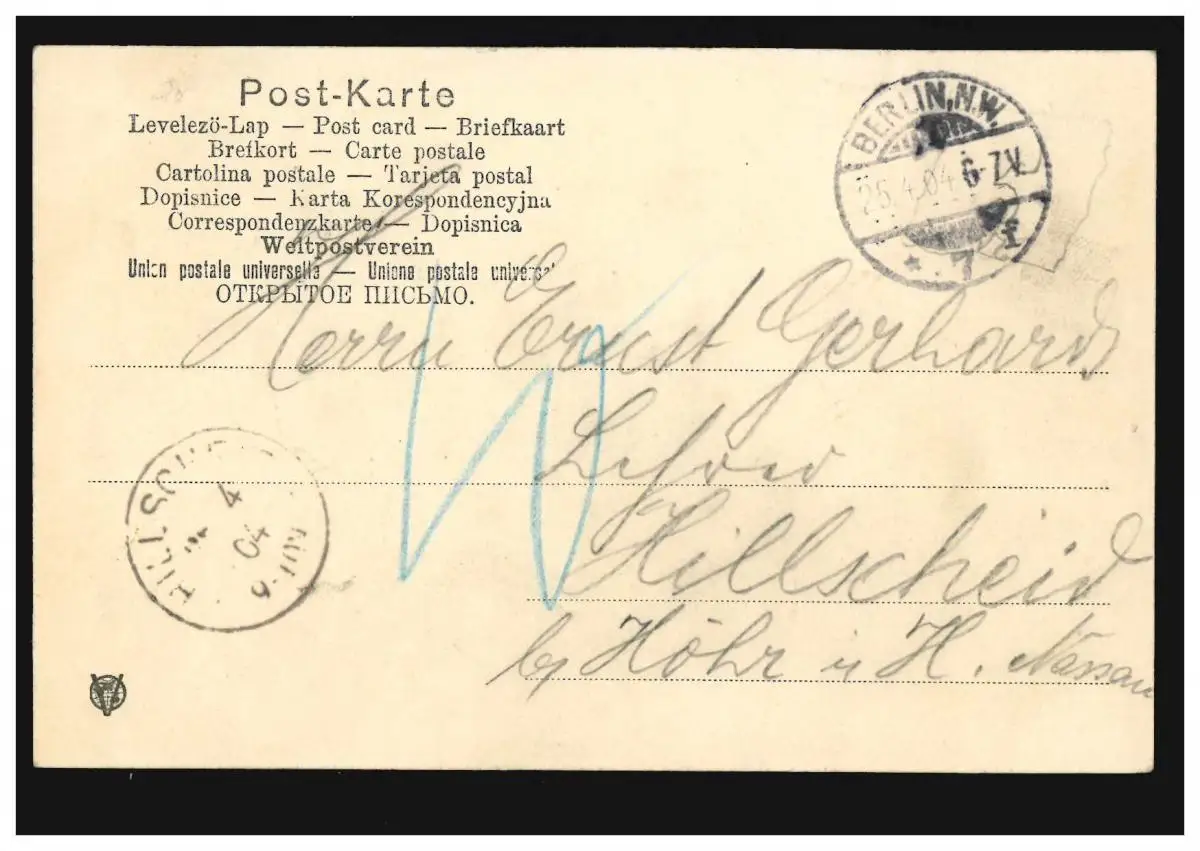 Post-Karte
Levelezö-Lap — Post card — Briefkaart
Brefkort — Carte postale
Cartolina postale — Tarjeta postal
Dopisnice — Karta Korespondencyjna
Correspondenzkarte — Dopisnica
Weltpostverein
Union postale universelle — Unione postale universal
ОТКРЫТОЕ ПИСЬМО.
BERLIN, N.W.
25.4.04 6-7V
* 7 f
Herrn Ernst Gerhards
Lehrer
Hillscheid
by Höhr
H. Nassau
4
04